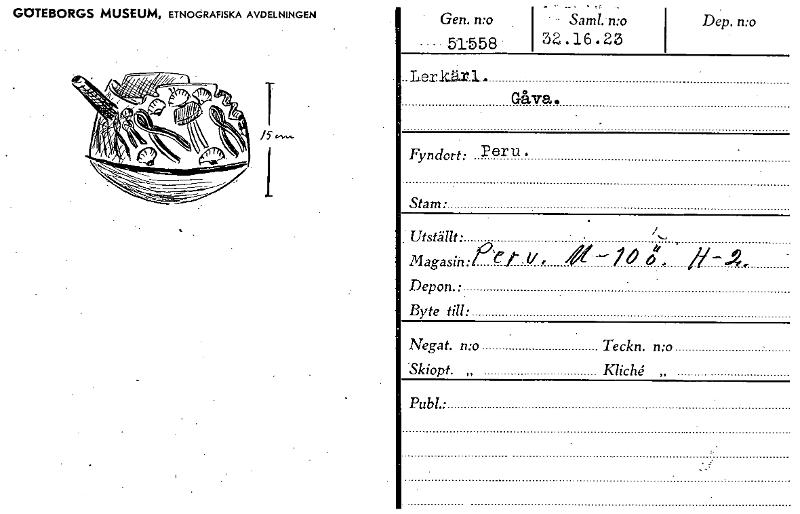 GÖTEBORGS MUSEUM, ETNOGRAFISKA AVDELNINGEN
15 cm
Gen. n:o Saml. n:o Dep. n:o
51558 32.16.23
Lerkärl.
Gåva.
Fyndort: Peru.
Stam:
Utställt:
Magasin: Peru. M-10 ö. H-2.
Depon.:
Byte till:
Negat. n:o Teckn. n:o
Skiopt. „ Kliché „
Publ.: